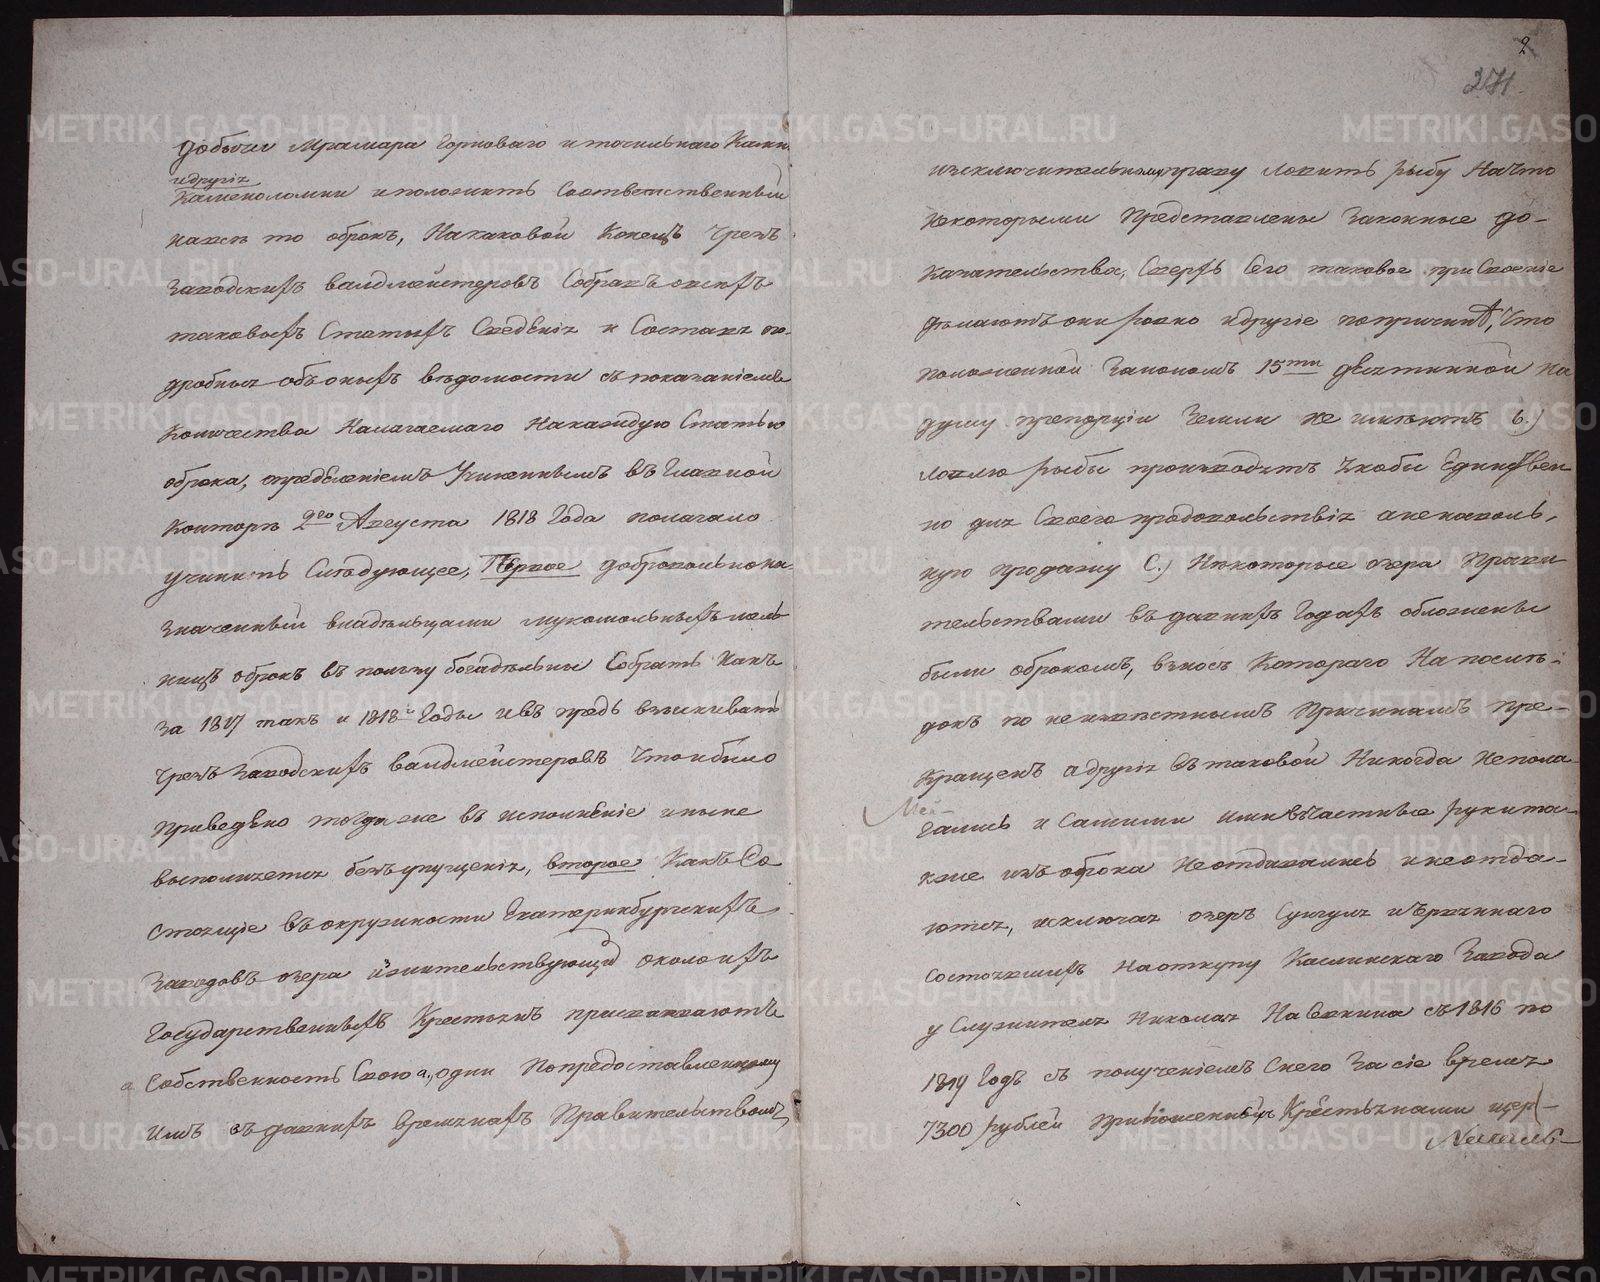 добычи мрамара горноваго и точильнаго камня
и другiя
каменоломни и положить соответственный
на все то оброкъ, на каковой конецъ чрезъ
заводскихъ валдмейстеровъ собравъ о всехъ
таковыхъ статьяхъ сведенiя и составя по-
дробныя объ оныхъ ведомости съ показанiемъ
количества налагаемаго на каждую статью
оброка, определенiемъ учиненнымъ въ главной
конторе 2го августа 1818 года полагало
учинить следующее, Первое доброволно на-
значенный владельцами мукомольныхъ мель
ницъ оброкъ въ пользу богадельны собрать какъ
за 1817 такъ и 1818й годы и въ предь взыскивать
чрезъ заводскихъ валдмейстеровъ что и было
приведено тогда же въ исполненiе и ныне
выполняется безъ упущенiя, второе какъ со
стоящiе въ окружности Екатеринбургскихъ
заводовъ озера жительствующiя около ихъ
государственныхъ крестьянъ присвояваютъ
а собственность свою а., одни по предоставленному
имъ въ давнихъ временахъ правительствомъ
2
271
изключительному праву ловить рыбу на что
некоторыми представлены законные до-
казательства, сверхъ сего таковое присвоенiе
делаютъ они равно и другiе по причине, что
положенной закономъ 15ти десятинной на
душу препорцiи земли не имеютъ б.)
ловлю рыбы производятъ якобы единствен
но для своего продовольствiя а не на воль-
ную продажу с.) некоторые озера прави
тельствами въ давнихъ годахъ обложены
были оброкомъ, взносъ котораго на после-
докъ по неизвестнымъ причинамъ пре-
кращенъ а другiя въ таковой никогда не пола-
Мей-
гались и самими ими въ частные руки та-
кже изъ оброка не отдавались и не отда-
ются, исключая озеръ Сунгуля и Ервяннаго
состоявшихъ на откупу Каслинскаго завода
у служителя Николая Навокина съ 1816 по
1819 годъ съ полученiемъ с него за сiе время
7300 рублей приложенныхъ крестьянами церк-